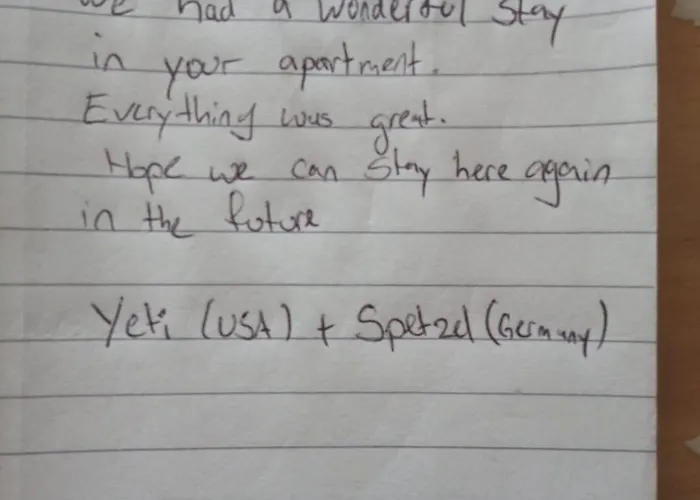 we had a wonderful stay
in your apartment.
Everything was great.
Hope we can stay here again
in the future
Yeti (USA) + Spetzel (Germany)